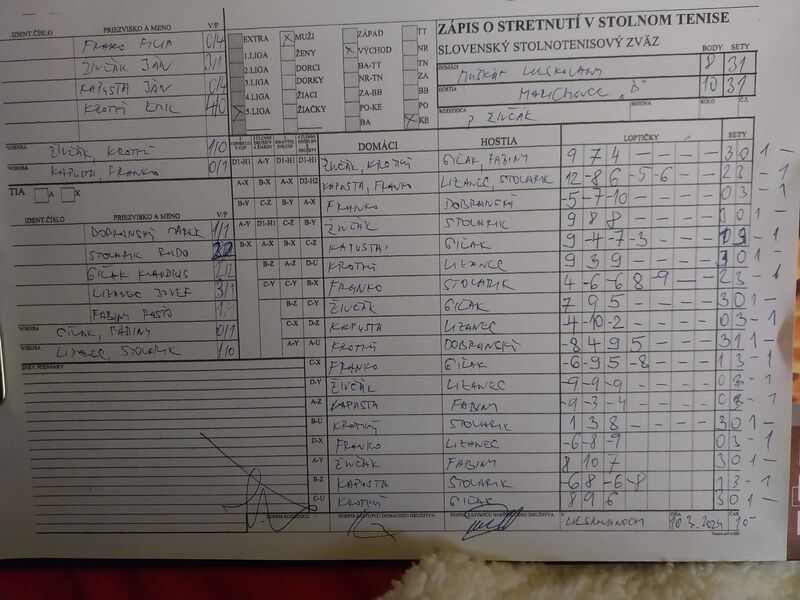 ZÁPIS O STRETNUTÍ V STOLNOM TENISE
SLOVENSKÝ STOLNOTENISOVÝ ZVÄZ
IDENT.ČÍSLO PRIEZVISKO A MENO V/P
FRANKO FILIP 0/4
ŽIVČÁK JÁN 3/1
KAPUSTA JÁN 0/4
KROTKÝ ERIK 4/0
ŽIVČÁK, KROTKÝ 1/0
KAPUSTA, FRANKO 0/1
EXTRA
1.LIGA
2.LIGA
3.LIGA
4.LIGA
5.LIGA
X MUŽI
ŽENY
DORCI
DORKY
ŽIACI
ŽIAČKY
ZÁPAD
X VÝCHOD
BA-TT
NR-TN
ZA-BB
PO-KE
BA
TT
NR
TN
ZA
BB
PO
X KE
DOMÁCI BODY SETY
8 31
HOSTIA
MALCHOVCE "B" 10 31
ROZHODCA
P. ŽIVČÁK
KOLO Č.Z.
TIA A X
IDENT.ČÍSLO PRIEZVISKO A MENO V/P
DOBRANSKÝ 1/1
STOLARIK RUDO
GIČAK KLAUDIUS 2/2
LIZANEC JOZEF 3/1
FABINY RASŤO
GIČAK, FABINY 0/1
LIZANEC, STOLARIK 1/0
ZNKY, POZNÁMKY
DOMÁCI HOSTIA LOPTIČKY SETY
D1-H1 A-Y D1-H1 D1-H1 ŽIVČÁK, KROTKÝ GIČAK, FABINY 9 7 4 - - - - 3 0 1 -
A-X B-X A-X D2-H2 KAPUSTA, FRANKO LIZANEC, STOLARIK 12 -8 6 -5 -6 - - 2 3 - 1
B-Y C-Z B-Y A-X FRANKO DOBRANSKÝ -5 -7 -10 - - - - 0 3 - 1
A-Y D1-H1 C-Z B-Y ŽIVČÁK STOLARIK 9 8 8 - - - - 3 0 1 -
B-X A-X B-X C-Z KAPUSTA GIČAK 9 -4 -7 -3 - - - 1 3 - 1
B-Z A-Z D-U KROTKÝ LIZANEC 9 3 9 - - - - 3 0 1 -
C-Y C-Y B-X FRANKO STOLARIK 4 -6 -6 8 -9 - - 2 3 - 1
B-Z C-Y ŽIVČÁK GIČAK 7 9 5 - - - - 3 0 1 -
C-X D-Z KAPUSTA LIZANEC -4 -10 -2 - - - - 0 3 - 1
A-Y A-U KROTKÝ DOBRANSKÝ -8 4 9 5 - - - 3 1 1 -
C-X FRANKO GIČAK -6 -9 5 -8 - - - 1 3 - 1
D-Y ŽIVČÁK LIZANEC -9 -9 -9 - - - - 0 3 - 1
A-Z KAPUSTA FABINY -9 -3 -4 - - - - 0 3 - 1
B-U KROTKÝ STOLARIK 1 3 8 - - - - 3 0 1 -
D-X FRANKO LIZANEC -6 -8 -9 0 3 - 1
A-Y ŽIVČÁK FABINY 8 10 7 3 0 1 -
B-Z KAPUSTA STOLARIK -6 8 -6 -8 1 3 - 1
C-U KROTKÝ GIČAK 8 9 6 3 0 1 -
PODPIS ROZHODCU PODPIS ZÁSTUPCU DOMÁCEHO DRUŽSTVA PODPIS ZÁSTUPCU HOSŤUJÚCEHO DRUŽSTVA V DŇA 10.3.2024 ČAS 10